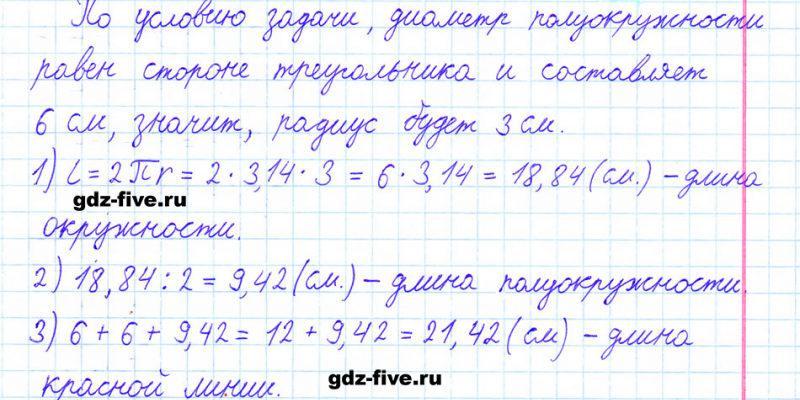 По условию задачи, диаметр полуокружности
равен стороне треугольника и составляет
6 см, значит, радиус будет 3 см.
1) C = 2πr = 2 · 3,14 · 3 = 6 · 3,14 = 18,84 (см.) – длина
gdz-five.ru
окружности.
2) 18,84 : 2 = 9,42 (см.) – длина полуокружности.
3) 6 + 6 + 9,42 = 12 + 9,42 = 21,42 (см) – длина
красной линии.
gdz-five.ru